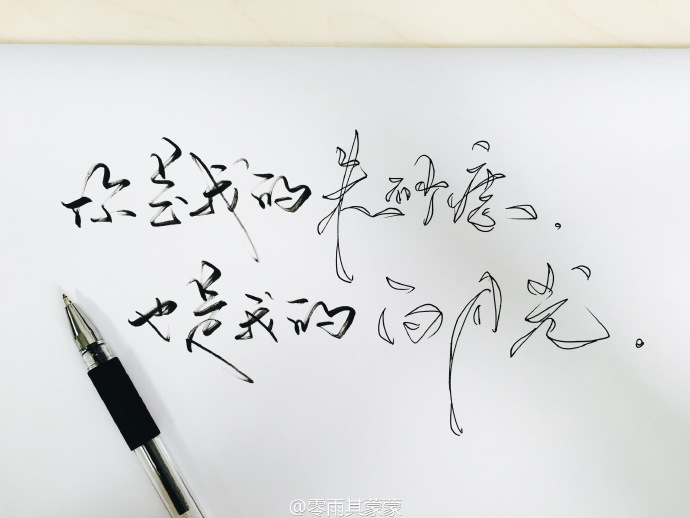 你是我的朱砂痣，
也是我的白月光。
@零雨其蒙蒙